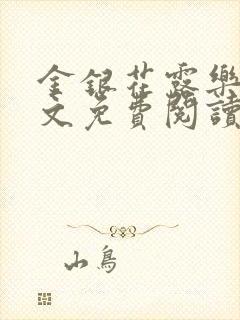 金銀花露樂
文免費閱讀
山鳥